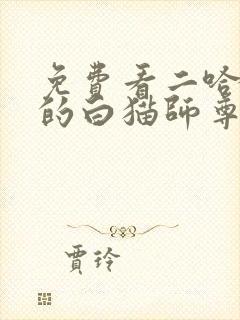 免费看二哈
的白猫师尊
贾玲